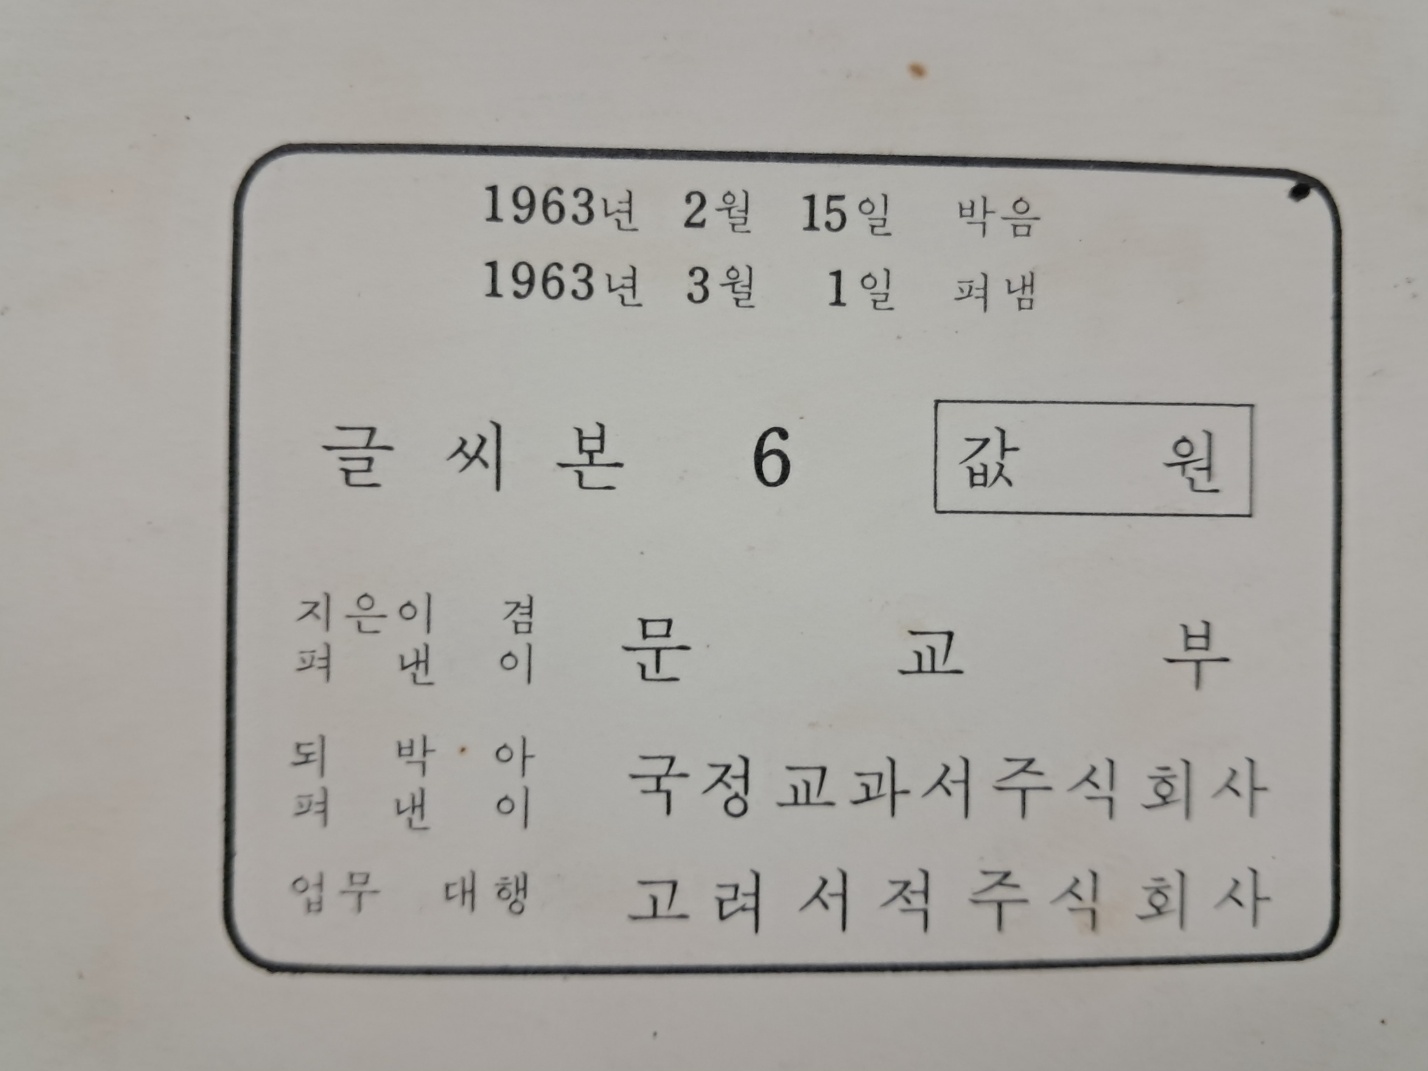 1963년 2월 15일 박음
1963년 3월 1일 펴냄
글씨본 6 값 원
지은이 겸
펴낸이 문교부
되박아
펴낸이 국정교과서주식회사
업무 대행 고려서적주식회사